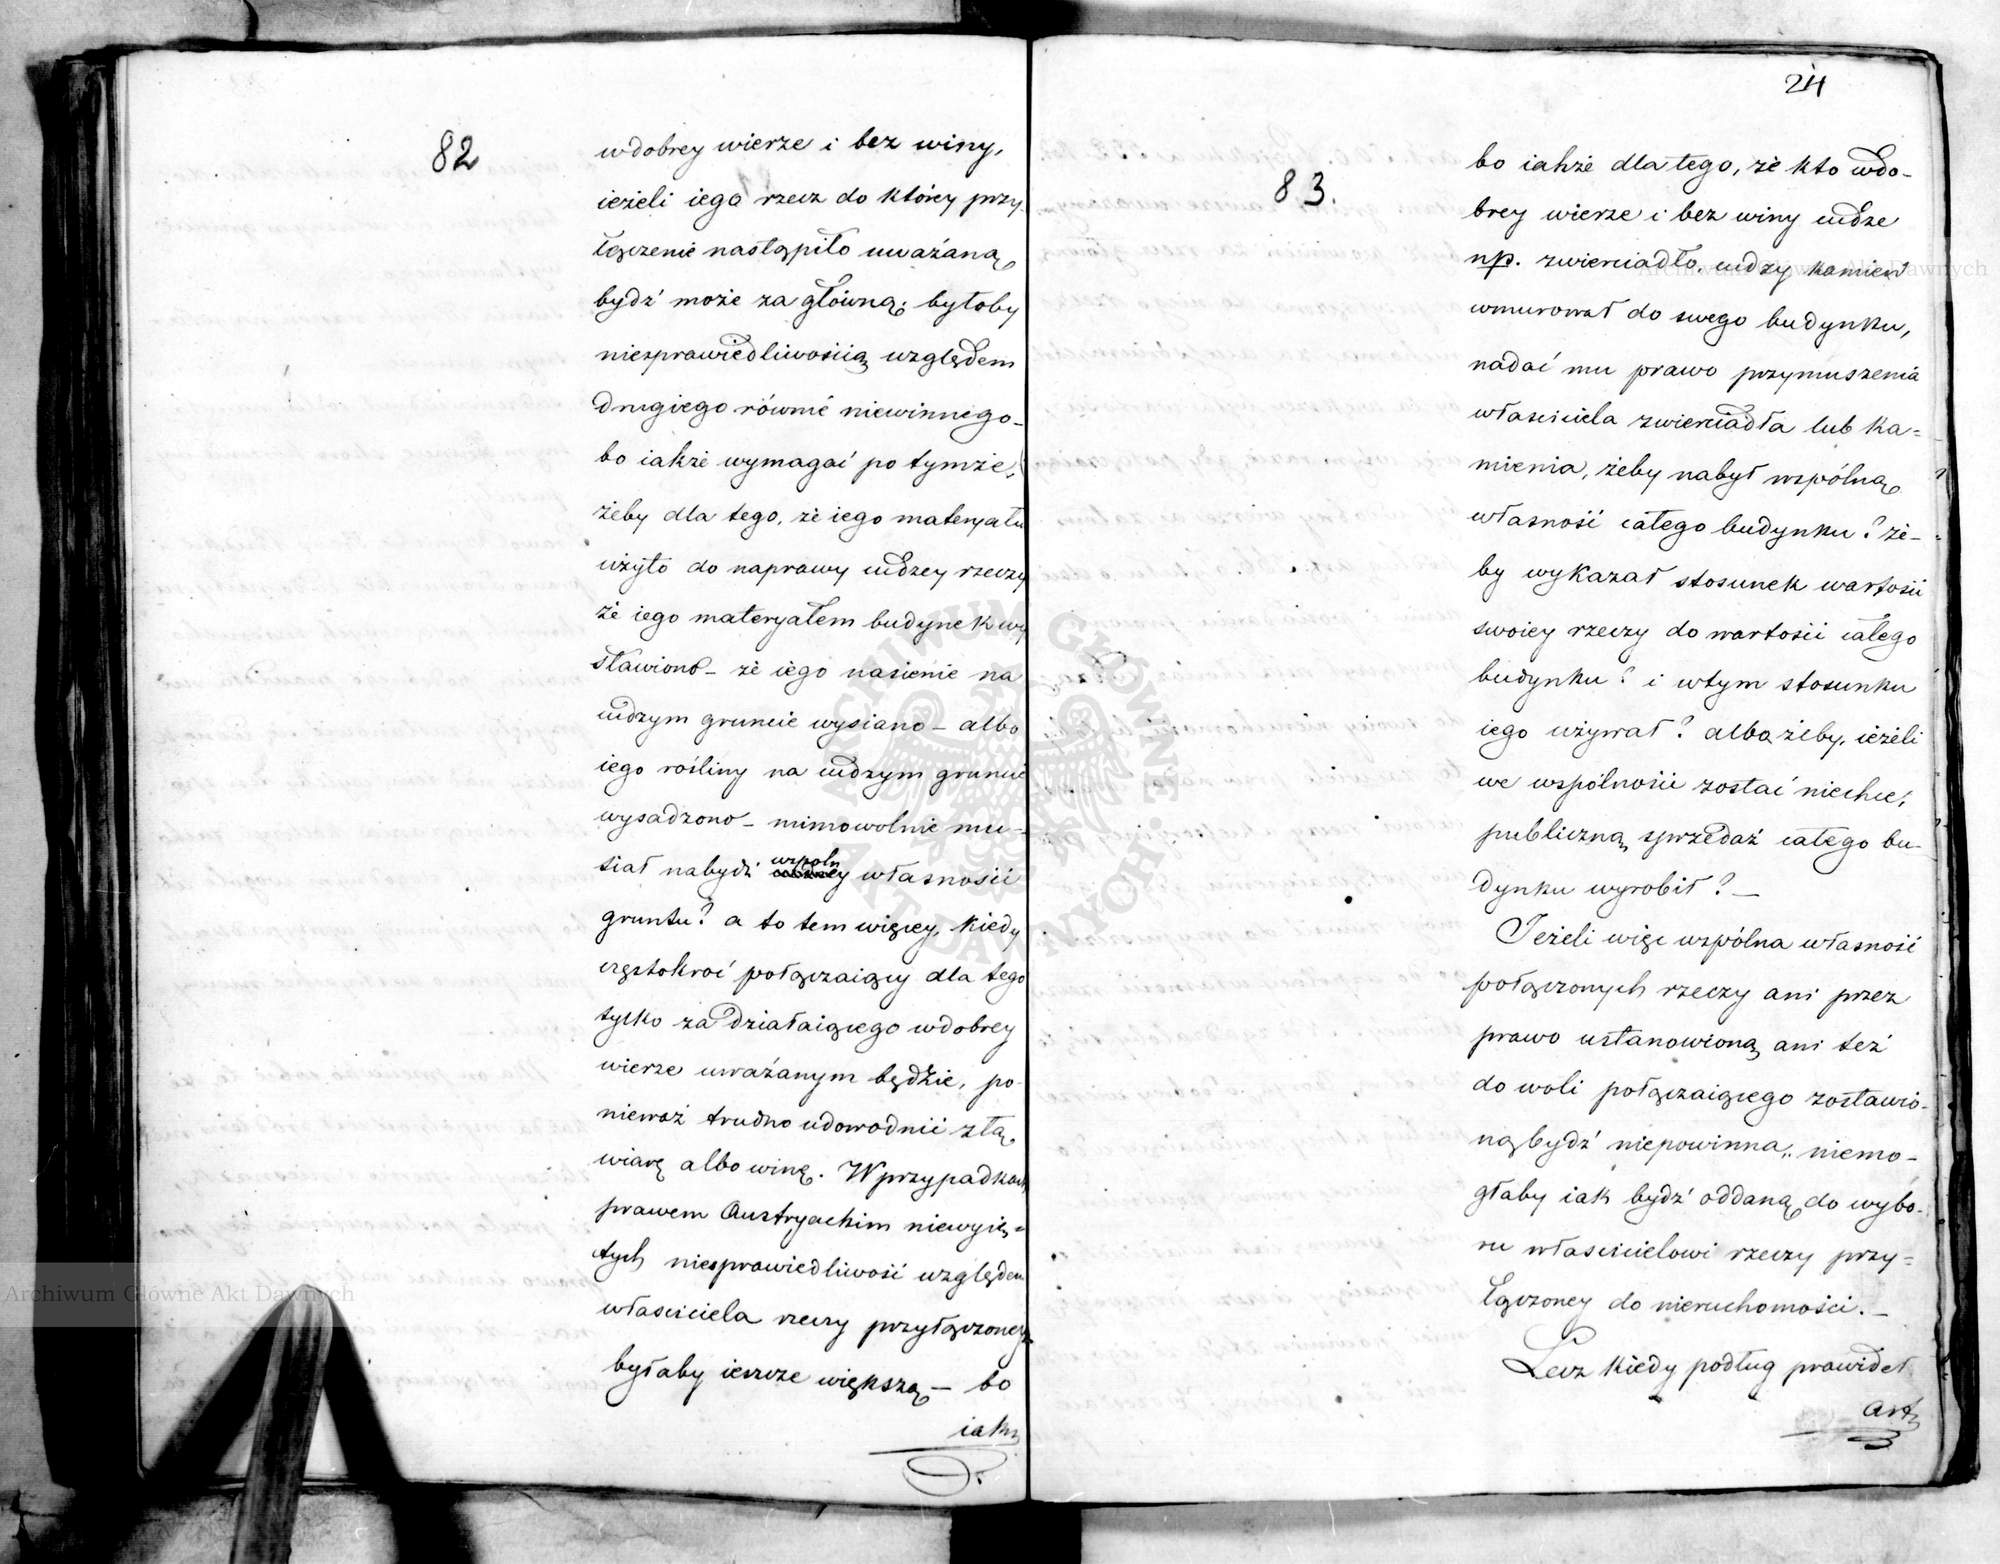 82
wdobrey wierze i bez winy,
ieżeli iego rzecz do którey przy
łączenie nastąpiło uważaną
bydź może za główną; byłoby
niesprawiedliwością względem
drugiego równie niewinnego_
bo iakże wymagać po tymże,
żeby dla tego, że iego materyału
użyto do naprawy cudzey rzeczy
że iego materyałem budynek wy
stawiono_ że iego nasienie na
cudzym gruncie wysiano_ albo
iego rośliny na cudzym gruncie
wysadzono_ mimowolnie mu-
siał nabydź wspolney własności
gruntu? a to tem więcey, kiedy
częstokroć połączaiący dla tego
tylko za działaiącego wdobrey
wierze uważanym będzie, po-
nieważ trudno udowodnić złą
wiarę albo winę. W przypadkach
prawem Austryackim niewyię=
tych niesprawiedliwość względem
właściciela rzeczy przyłączoney
byłaby ieszcze większą_ bo
iakże
24
83.
bo iakże dla tego, że kto wdo-
brey wierze i bez winy cudze
np. zwierciadło, cudzy kamień
wmurował do swego budynku,
nadać mu prawo przymuszenia
właściciela zwierciadła lub ka=
mienia, żeby nabył wspólną
własność całego budynku? że-
by wykazał stosunek wartości
swoiey rzeczy do wartości całego
budynku? i wtym stosunku
iego używał? albo żeby, ieżeli
we wspólności zostać niechce,
publiczną sprzedaż całego bu-
dynku wyrobił?_
Jeżeli więc wspólna własność
połączonych rzeczy ani przez
prawo ustanowioną ani też
do woli połączaiącego zostawio-
ną bydź niepowinna, niemo-
głaby iak bydź oddaną do wybo-
ru właścicielowi rzeczy przy=
łączoney do nieruchomości._
Lecz kiedy podług prawideł
art
Archiwum Główne Akt Dawnych
Archiwum Główne Akt Dawnych
ARCHIWUM GŁÓWNE AKT DAWNYCH